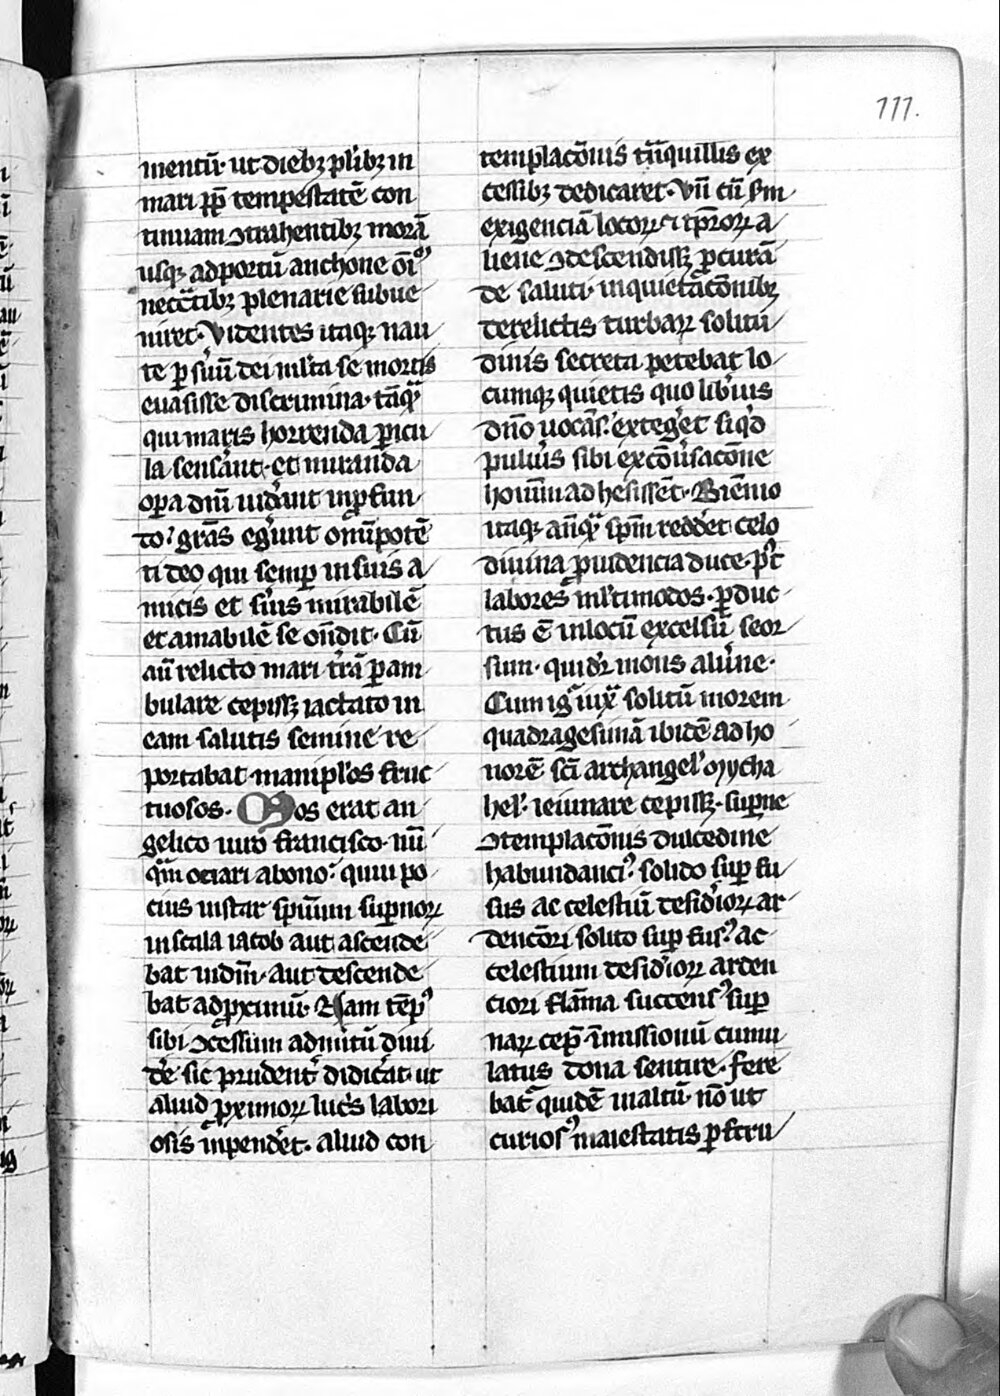 111.
mentū· ut diebꝫ pl'ibꝫ in
mari ꝓpt̄ tempestatē con
tinuam ꝯtrahentibꝫ morā
usqꝫ ad portū anchone oīꝰ
necc̄tibꝫ plenarie subue
niret· Videntes itaqꝫ nau
te ꝑ s'uū dei ml'ta se mortis
euasisse discrimina· tāqͣꝫ
qui maris horrenda ꝑicu
la sens'ant· et miranda
oꝑa dn̄i uid'ant in ꝓfun
to· gr̄as eg'unt om̄ipotē
ti deo qui semꝑ in suis a
micis et s'uis mirabilē
et amabilē se on̄dit· Cū
aū relicto mari t'rā ꝑam
bulare cepissꝫ iactato in
eam salutis semine re
portabat manipl'os fruc
tuosos· Mos erat an
gelico uiro francisco· nū
qͣm ociari a bono· quin po
cius instar sp̄uum suꝑnoꝝ
in scala iacob aut ascende
bat in dm̄· aut descende
bat ad ꝓximū· Nam tēpꝰ
sibi ꝯcessum ad m'itū diui
de'e sic prudent' didic'at· ut
aliud ꝓximoꝝ luc's labori
osis inpend'et· aliud con
templac̄onis tūquillis ex
cessibꝫ dedicaret· Vn̄ cū s'm
exigenciā locoꝝ ⁊ tp̄roꝝ a
liene ꝯdescendissꝫ ꝓcurā
de saluti· inquietac̄onibꝫ
derelictis turbaꝝ solitu
dinis secreta petebat lo
cumqꝫ quietis quo lib'ius
dn̄o uocās· exteg'et siq'd
pulu'is sibi ex cōu'sac̄one
hoīm adhesissēt· Biēnio
itaqꝫ an̄qͣꝫ sp̄m redd'et celo
diuina ꝓuidencia duce· p't
labores ml'timodos· ꝑduc
tus ē in locū excelsū seor
sum· qui d'r mons alu'ne·
Cum igͥ iux̄ solitū morem
quadragesimā ibidē ad ho
norē sc̄i archangel' mycha
hel'· ieiunare cepissꝫ· suꝑne
ꝯtemplac̄onis dulcedine
habundanciꝰ solito suꝑfu
sus ac celestiū desid'ioꝝ ar
denc̄ori solito suꝑfusꝰ ac
celestium desid'ioꝝ arden
ciori flāma succensꝰ suꝑ
naꝝ cep̄ īmissionū cumu
latus dona sentire· fere
bat' quidē in altū· nō ut
curiosꝰ maiestatis ꝑscru